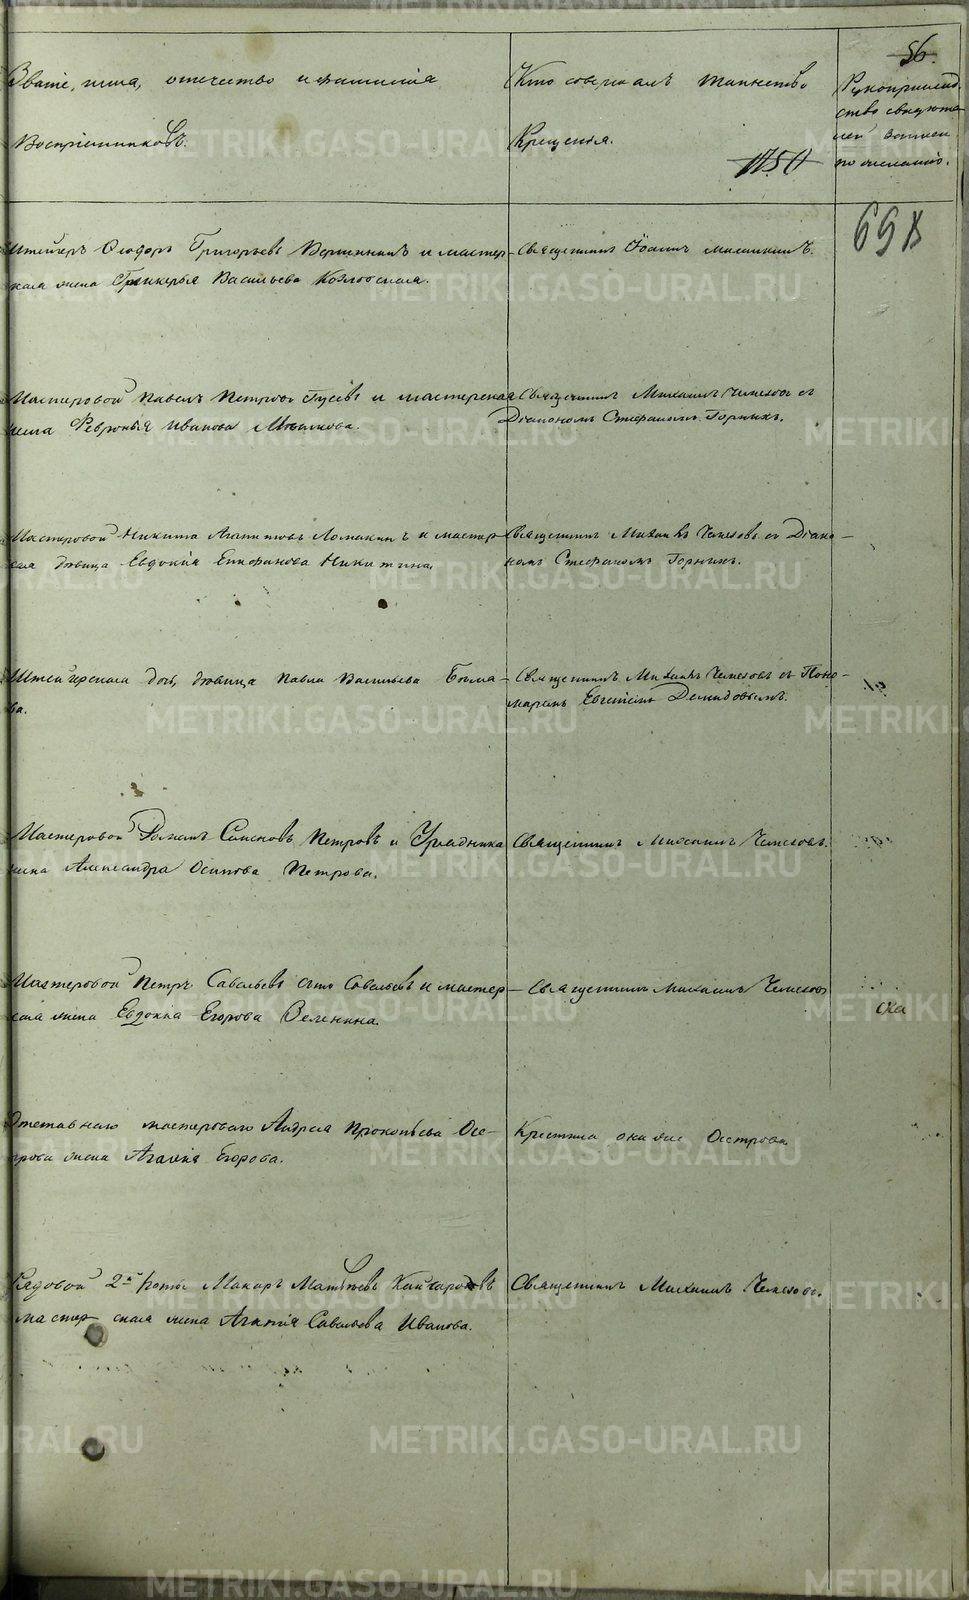 56.
Званiе, имя, отчество и фамилiя
Воспрiемниковъ.
Кто совершалъ таинство
Крещенiя.
1750
Рукоприклад-
ство свидѣте-
лей записи
по желанiю.
69
Штейгеръ Ѳеодоръ Григорьевъ и мастер-
ская жена Гликерья Васильева Козловская.
Священникъ Iоаннъ
Мастеровой Павелъ Петровъ Гусевъ и мастерская
жена Февронья Иванова
Священникъ Михаилъ Чемезовъ съ
Дiакономъ Стефаномъ Горныхъ.
Мастеровой Никита Агапитовъ Ломакинъ и мастер-
ская дѣвица Евдокiя Епифанова Никитина.
Священникъ Михаилъ Чемезовъ съ Дiако-
номъ Стефаномъ Горныхъ.
Штейгерская дочь, дѣвица Павла Васильева
ва.
Священникъ Михаилъ Чемезовъ съ Поно-
маремъ Евгенiемъ Демидовымъ.
Мастеровой Романъ Семеновъ Петровъ и Урядника
жена Александра Осипова Петрова.
Священникъ Михаилъ Чемезовъ.
Мастеровой Петръ Савельевъ Савельевъ и мастер-
ская жена Евдокiя Егорова Зеленина.
Священникъ Михаилъ Чемезовъ
Отставнаго мастероваго Андрея Прокопьева Ос-
трова жена Агапiя Егорова.
Крестила она же Острова
Рядовой 2й роты Макаръ Матвѣевъ
мастерская жена Агапiя Савельева Иванова.
Священникъ Михаилъ Чемезовъ.
METRIKI.GASO-URAL.RU